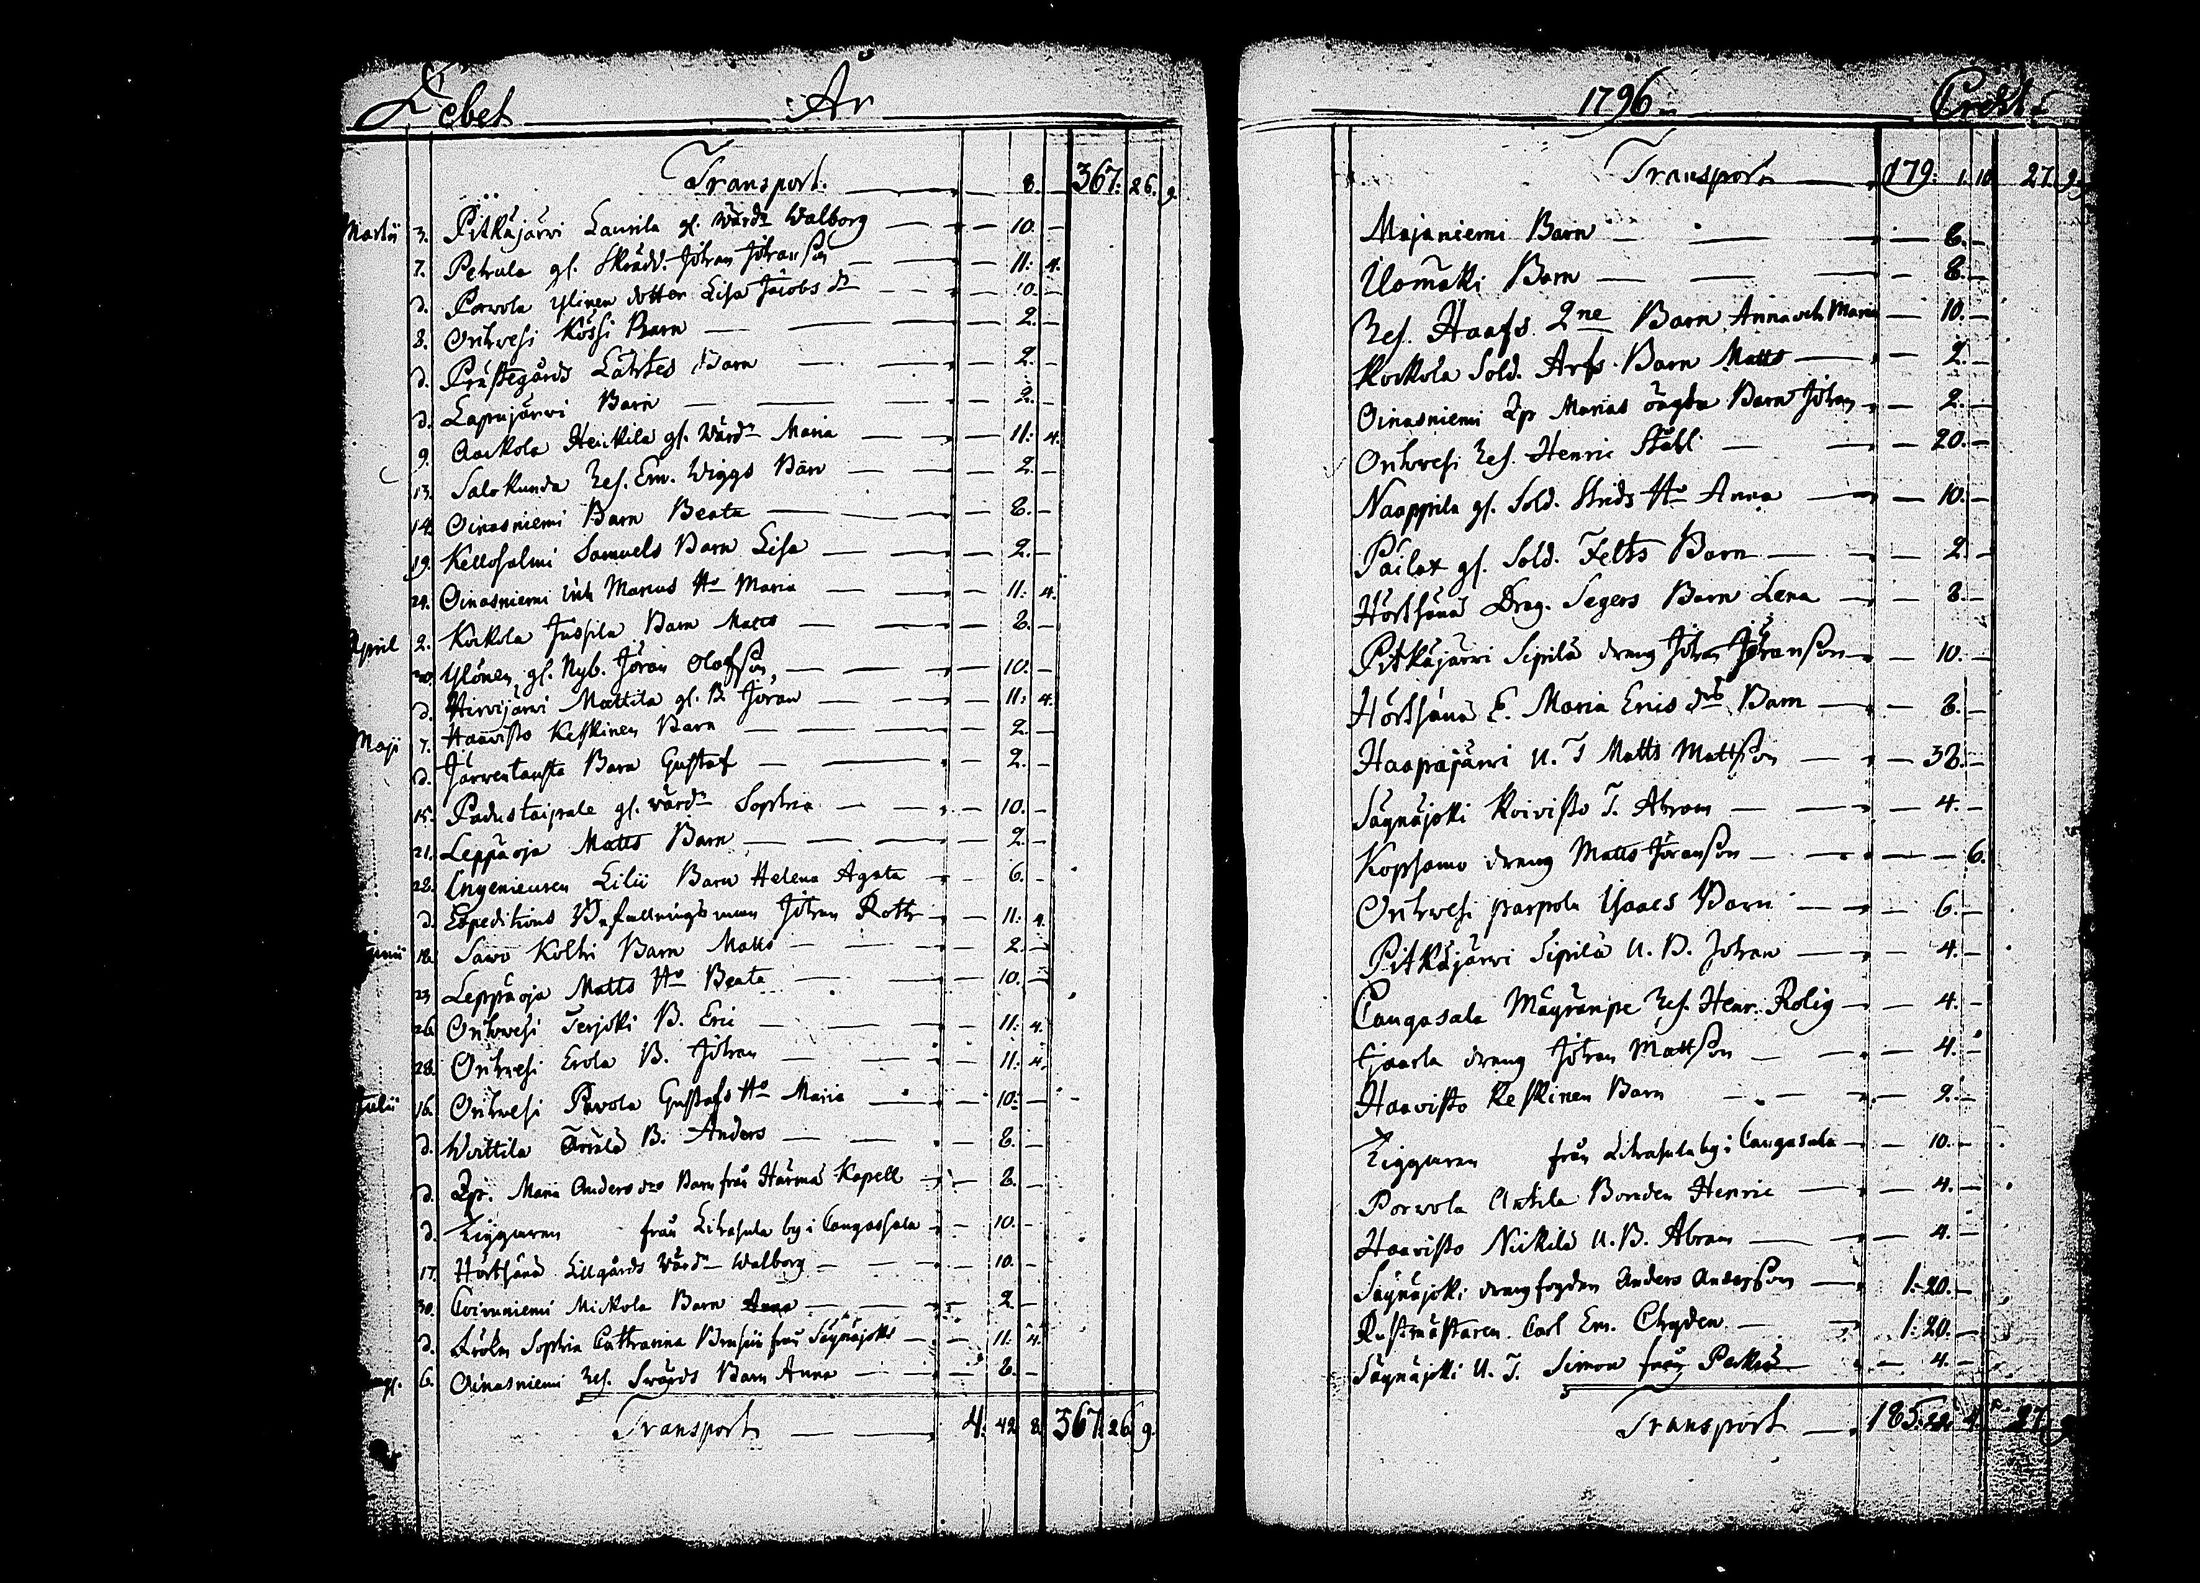 Debet År
Transport. 8. 367: 26. 9.
Martii 3. Pitkäjärvi Laurila gl. Värd:n Walborg 10.
7. Petrula gl. Skrädd. Johan Johansson 11: 4.
d. Porvola Ylinen dotter Lisa Jacobs dr 10.
8. Orihvesi Kössi Barn 2.
d. Prästegårds Lahtes Barn 2.
d. Lapinjärvi Barn 2.
9. Heickilä gl. Värd:n Maria 11: 4.
13. Salokunda Res. Em. Wiggs Barn 2.
14. Oinasniemi Barn Beata 8.
19. Kellosalmi Samuels Barn Lisa 2.
24. Oinasniemi Inh Marcus Ho Maria 11: 4.
April 2. Kockola Jussila Barn Matts 8.
20. Ylönen gl. Nyb. Jöran Olofsson 10.
d. Hirvijärvi Mattila gl. B. Jöran 11: 4.
Maji 7. Haavisto Keskinen Barn 2.
d. Järventausta Barn Gustaf 2.
15. Padustaipale gl. värd:n Sophia 10.
21. Leppäoja Matts Barn 2.
22. Ingenieuren Lilii Barn Helena Agata 6.
d. Expeditions Befallningsman Johan Roth 11: 4.
Junii 18. Savo Kolhi Barn Matts 2.
23 Leppäoja Matts Ho Beata 10.
26. Orihvesi Terjoki B. Eric 11: 4.
28. Orihvesi Erola B. Johan 11: 4.
Julii 16. Orihvesi Pavola Gustafs Ho Maria 10.
d. Wirttila B. Anders 8.
d. Qp. Maria Anders drs Barn från Härmä Kapell 8.
d. Tiggaren från Lihasula by i Cangasala 10.
17. Hörthänä Lillgårds Värd:n Walborg 10.
30. Mickola Barn Anna 2
d. Fröken Sophia Catharina från Säynäjoki 11: 4.
6. Oinasniemi Res. Swärds Barn Anna 8.
Transport 4: 42 8. 367: 26. 9.
1796 Credit
Transport 179: 1. 10 27. 9
Majaniemi Barn 8.
Uomäki Barn 8.
Res. Haafs 2ne Barn Anna och Maria 10.
Kockola Sold. Arfs Barn Matts 2.
Oinasniemi Qp Marias oägta Barn Johan 2.
Orihvesi Res. Henric Ståhl 20.
Naappila gl. Sold. Strids Ho Anna 10.
Päilax gl. Sold. Felts Barn 2.
Hörthänä Drag. Segers Barn Lena 8.
Pitkäjärvi Sipilä dreng Johan Johansson 10.
Hörthänä E. Maria Erics drs Barn 8.
Haapajärvi U. T Matts Mattsson 32.
Säynäjoki Koivisto T. Abram 4.
Kopsamo dreng Matts Jöransson 6.
Orihvesi parpola Isaacs Barn 6.
Pitkäjärvi Sipilä U. B. Johan 4.
Cangasala Mäyränpe Res. Henr. Rolig 4.
dreng Johan Mattsson 4.
Haavisto Keskinen Barn 2.
Tiggaren från Lihasula by i Cangasala 10.
Porvola Anttila Bonden Henric 4.
Haavisto Nickilä U. B. Abram 4.
Säynäjoki drengfogden Anders Andersson 1: 20.
Rustmästaren Carl Em. Chryden 1: 20.
Säynäjoki U. T. Simon från 4.
Transport 185: 22. 4. 27. 9